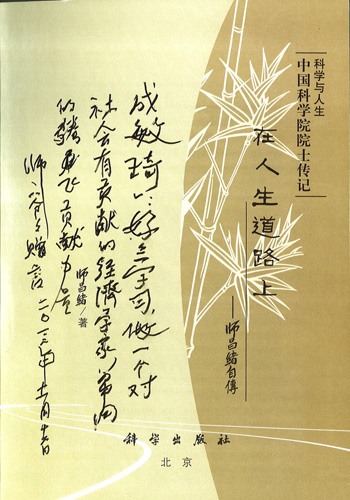 科学与人生
中国科学院院士传记
在人生道路上
——师昌绪自傳
成敏琦 学习，做一个对
社会有贡献的经濟学家，
的腾飞贡献力量
师昌绪赠言
师昌绪/著
科学出版社
北京